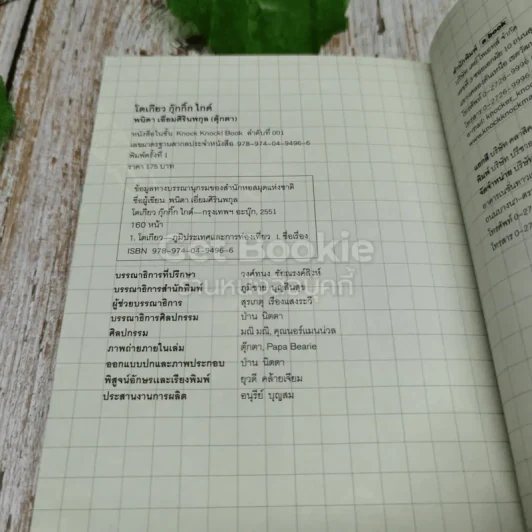 โตเกียว กุ๊กกิ๊ก ไกด์
พนิดา เอี่ยมศิรินพกุล (ตุ๊กตา)
หนังสือในชั้น Knock Knock! Book ลำดับที่ 001
เลขมาตรฐานสากลประจำหนังสือ 978-974-04-9496-6
พิมพ์ครั้งที่ 1
ราคา 175 บาท
ข้อมูลทางบรรณานุกรมของสำนักหอสมุดแห่งชาติ
ชื่อผู้เขียน พนิดา เอี่ยมศิรินพกุล
โตเกียว กุ๊กกิ๊ก ไกด์--กรุงเทพฯ อะบุ๊ก, 2551
160 หน้า
1. โตเกียว--ภูมิประเทศและการท่องเที่ยว I. ชื่อเรื่อง
ISBN 978-974-04-9496-6
GetBookie
บรรณาธิการที่ปรึกษา วงศ์ทนง ชัยณรงค์สิงห์
บรรณาธิการสำนักพิมพ์ ภูมิชาย บุญสินสุข
ผู้ช่วยบรรณาธิการ สุรเกตุ เรืองแสงระวี
บรรณาธิการศิลปกรรม ป่าน นิตตา
ศิลปกรรม มณิ มณิ, คุณนอร์แมนน์วล
ภาพถ่ายภายในเล่ม ตุ๊กตา, Papa Bearie
ออกแบบปกและภาพประกอบ ป่าน นิตตา
พิสูจน์อักษรและเรียงพิมพ์ ยุวดี คล้ายเจียม
ประสานงานการผลิต อนุรีย์ บุญสม
สำนักพิมพ์ a book